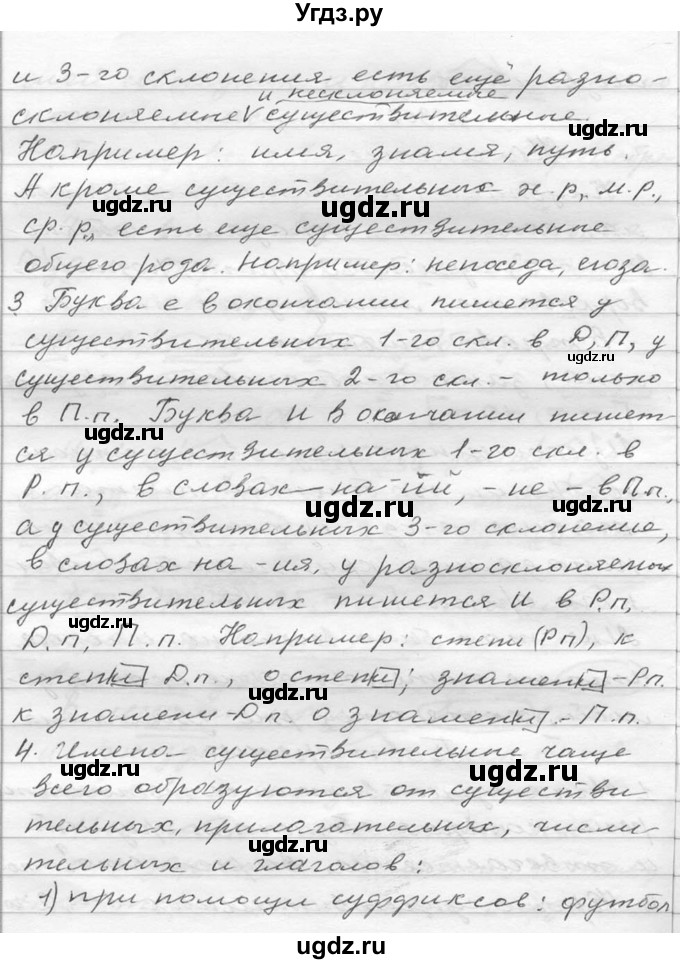 Угдз.ру
и 3-го склонения есть ещё разно-
и несклоняемые
склоняемые V существительные.
Например: имя, знамя, путь.
А кроме существительных ж.р., м.р.,
ugdz.ru
ugdz.ru
ср.р., есть еще существительные
общего рода. Например: непоседа, егоза.
3 Буква е в окончании пишется у
ugdz.ru
существительных 1-го скл. в Д, П, у
ugdz.ru
существительных 2-го скл. - только
в П.п. Буква И в окончании пишет-
ugdz.ru
ся у существительных 1-го скл. в
Р.п., в словах на -ий, -ие - в П.п.,
ugdz.ru
а у существительных 3-го склонение,
в словах на -ия, у разносклоняемых
существительных пишется И в Р.п,
ugdz.ru
Д.п, П.п. Например: степи (Рп), к
степи Д.п., о степи; знамени - Рп.
ugdz.ru
к знамени - Дп. о знамени. - П.п.
4. Имена существительные чаще
ugdz.ru
ugdz.ru
всего образуются от существи
тельных, прилагательных, числи
ugdz.ru
тельных и глаголов:
1) при помощи суффиксов: футбол
ugdz.ru